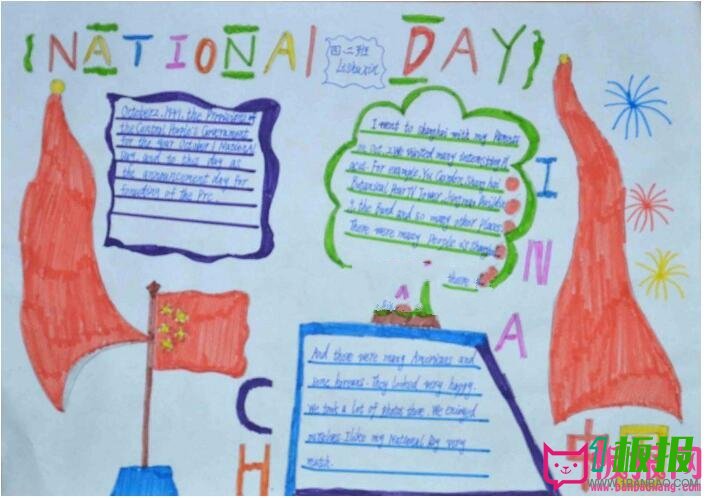 NATIONAL DAY
四.二班
Lishuxin
October 2, 1949, the
the Central People's Government
for the year October 1 National
Day, and to this day as
the announcement day for
founding of the Prc.
I went to Shanghai with my Parents
on Oct. 2. We visited many interesting
For example, Yu Garden Shanghai
Botanical, Pear TV Tower,
the Bund and so many other Places.
There were many People in Shanghai
there
And there were many Americans and
some koreans. They looked very happy.
We took a lot of photos there. We enjoyed
I like my National Day very
much.
C
H
I
N
A
中国
1板报
WWW.1BANBAO.COM
板报网
www.banbaowang.com